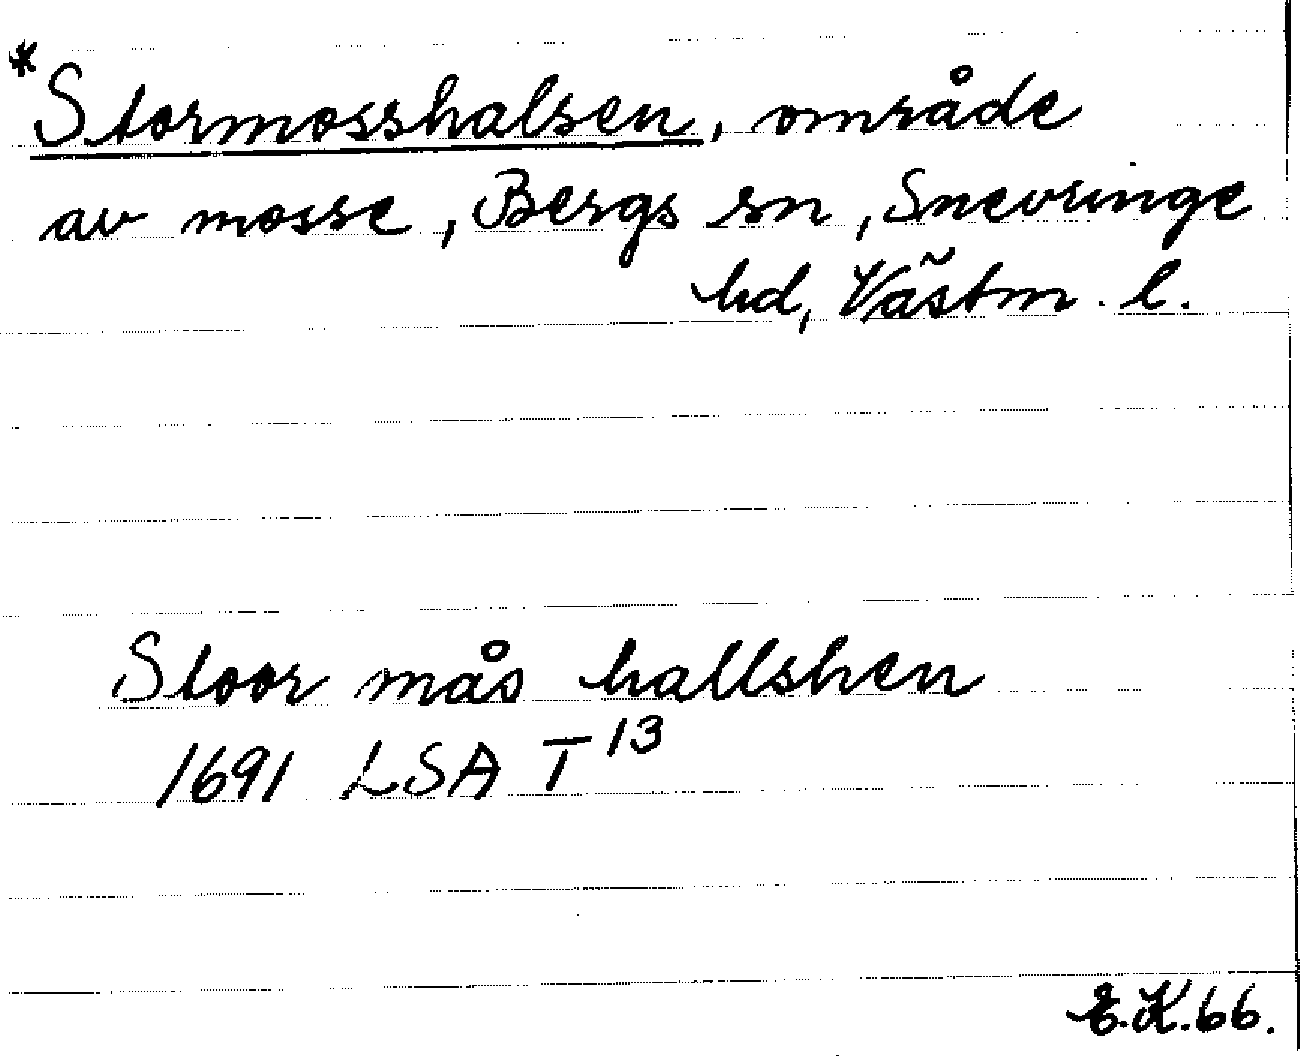 *Stormosshalsen, område
av mosse, Bergs sn, Snevringe
hd, Västm. l.
Stoor mås hallshen
1691 LSA T 13
E.K.66.